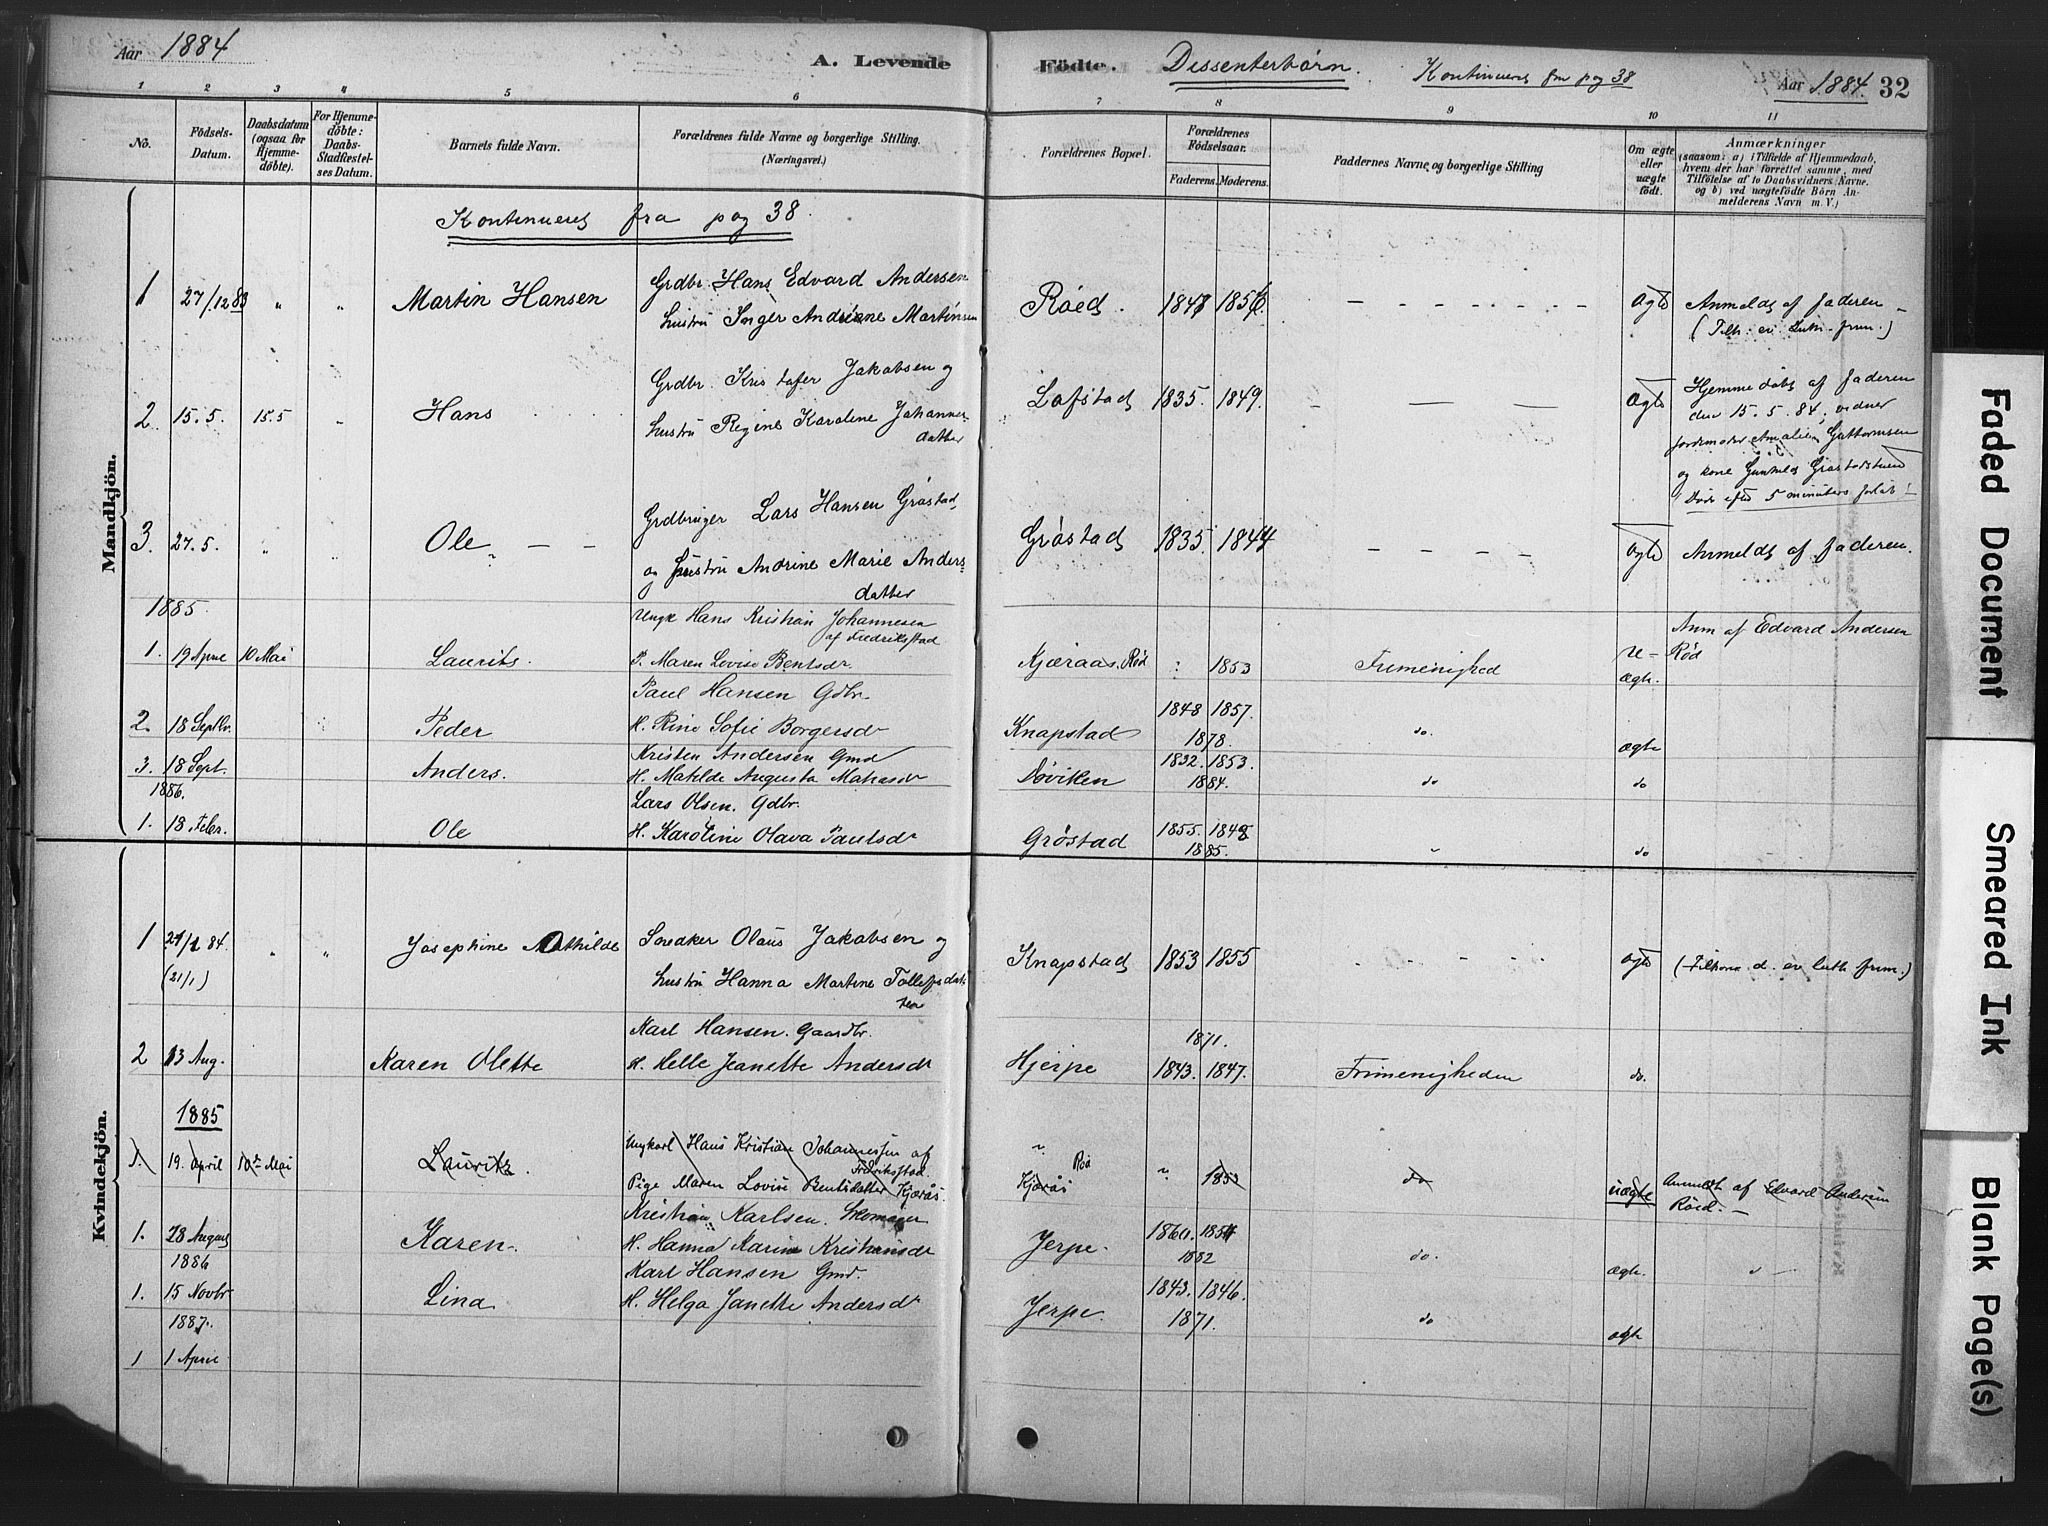 Aar 1884
A. Levende
Födte.
Dissenterbørn.
Kontinueres fra pag 38
Aar 1884.
32
1 2 3 4 5 6 7 8 9 10 11
No.
Födsels-
Datum.
Daabsdatum
(ogsaa for
Hjemme-
döbte).
For Hjemme-
döbte:
Daabs-
Stadfæstel-
ses Datum.
Barnets fulde Navn.
Forældrenes fulde Navne og borgerlige Stilling.
(Næringsvei.)
Forældrenes Bopæl.
Forældrenes
Födselsaar.
Faderens. Moderens.
Faddernes Navne og borgerlige Stilling
Om ægte
eller
uægte
födt.
Anmærkninger
(saasom: a) i Tilfælde af Hjemmedaab,
hvem der har forrettet samme, med
Tilföielse af to Daabsvidners Navne.
og b) ved uægtefödte Börn An-
melderens Navn m. V.)
Mandkjön.
Kontinueres fra pag 38.
1 27/12 83 " " Martin Hansen
Grdbr. Hans Edvard Andersen
hustru Inger Andrine Martinsen
Røed. 1847 1856 - - - - - - - Ægte
Anmeldt af Faderen
(Tilh. ev. Luth. frim.)
2. 15.5. 15.5 " Hans
Grdbr. Kristofer Jakobsen og
hustru Regine Karoline Johannes
datter
Lofstad 1835. 1849. - - - Ægte
Hjemmedøbt af Faderen
den 15.5.84, vidner
jordemoder Amalie Guttormsen
og kone Gunhild Grøstadstuen
Døde efter 5 minuters forløb!
3. 27.5. " " Ole - -
Grdbruger Lars Hansen Grøstad,
og Hustru Andrine Marie Anders
datter
Grøstad 1835. 1844 - - - - Ægte
Anmeldt af Faderen.
1885.
1. 19 April 10 Mai Laurits.
Ungk Hans Kristian Johannesen
af Fredriksstad
P. Maren Lovise Bentsdr.
Kjæraas. Rød " 1853 Frimenighed
u-
ægte.
Anm af Edvard Andersen
Rød
2. 18 Septbr. Peder
Paul Hansen Gdbr.
H. Rine Sofie Borgersdr
Knapstad 1848 1857.
1878. do. ægte
3. 18 Sept. Anders.
Kristen Andersen Gmd
H. Matilde Augusta
Døviken 1832. 1853.
1884. do do
1886.
1. 18 Febr. Ole
Lars Olsen. Gdbr.
H. Karoline Olava Paulsdr
Grøstad 1855. 1848
1885. " do
Kvindekjön.
1 21/1 84. " " Josephine Mathilde
(21/1)
Snedker Olaus Jakobsen og
hustru Hanna Martine Tollefsdat
ter
Knapstad 1853 1855 - - - - Ægte
(Tilhører d. ev luth frim.)
2 13 Aug. Karen Olette
Karl Hansen. Gaardbr.
H. Helle Jeanette Andersdr
Hjerpe 1871.
1843. 1847. Frimenigheden do.
1885
1. 19. April 10de Mai Lauritz
Ungkarl Hans Kristian Johannessen af
Fredriksstad.
Pige Maren Lovise Bentsdatter Kjærås.
" Rød
Kjærås " 1853 do uægte
Anmeldt af Edvard Andersen
Røed. -
1. 28 August Karen.
Kristian Karlsen. Skomager
H. Hanna Karine Kristiansdr
Jerpe. 1860. 1854
1882 do. ægte.
1886
1. 15 Novbr Lina
Karl Hansen Gmd.
H. Helga Janette Andersdr
Jerpe. 1843. 1846.
1871. do ægte
1887.
1 1 April
Faded Document
Smeared Ink
Blank Page(s)